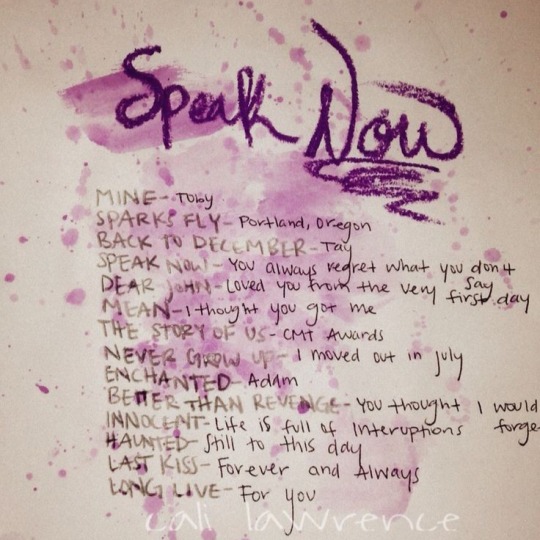 Speak Now
MINE- Toby
SPARKS FLY- Portland, Oregon
BACK TO DECEMBER- Tay
SPEAK NOW- You always regret what you don't say
DEAR JOHN- Loved you from the very first day
MEAN- I thought you got me
THE STORY OF US- CMT Awards
NEVER GROW UP- I moved out in july
ENCHANTED- Adam
BETTER THAN REVENGE- You thought I would forge-
INNOCENT- Life is full of Interuptions
HAUNTED- Still to this day
LAST KISS- Forever and Always
LONG LIVE- For you
cali lawrence